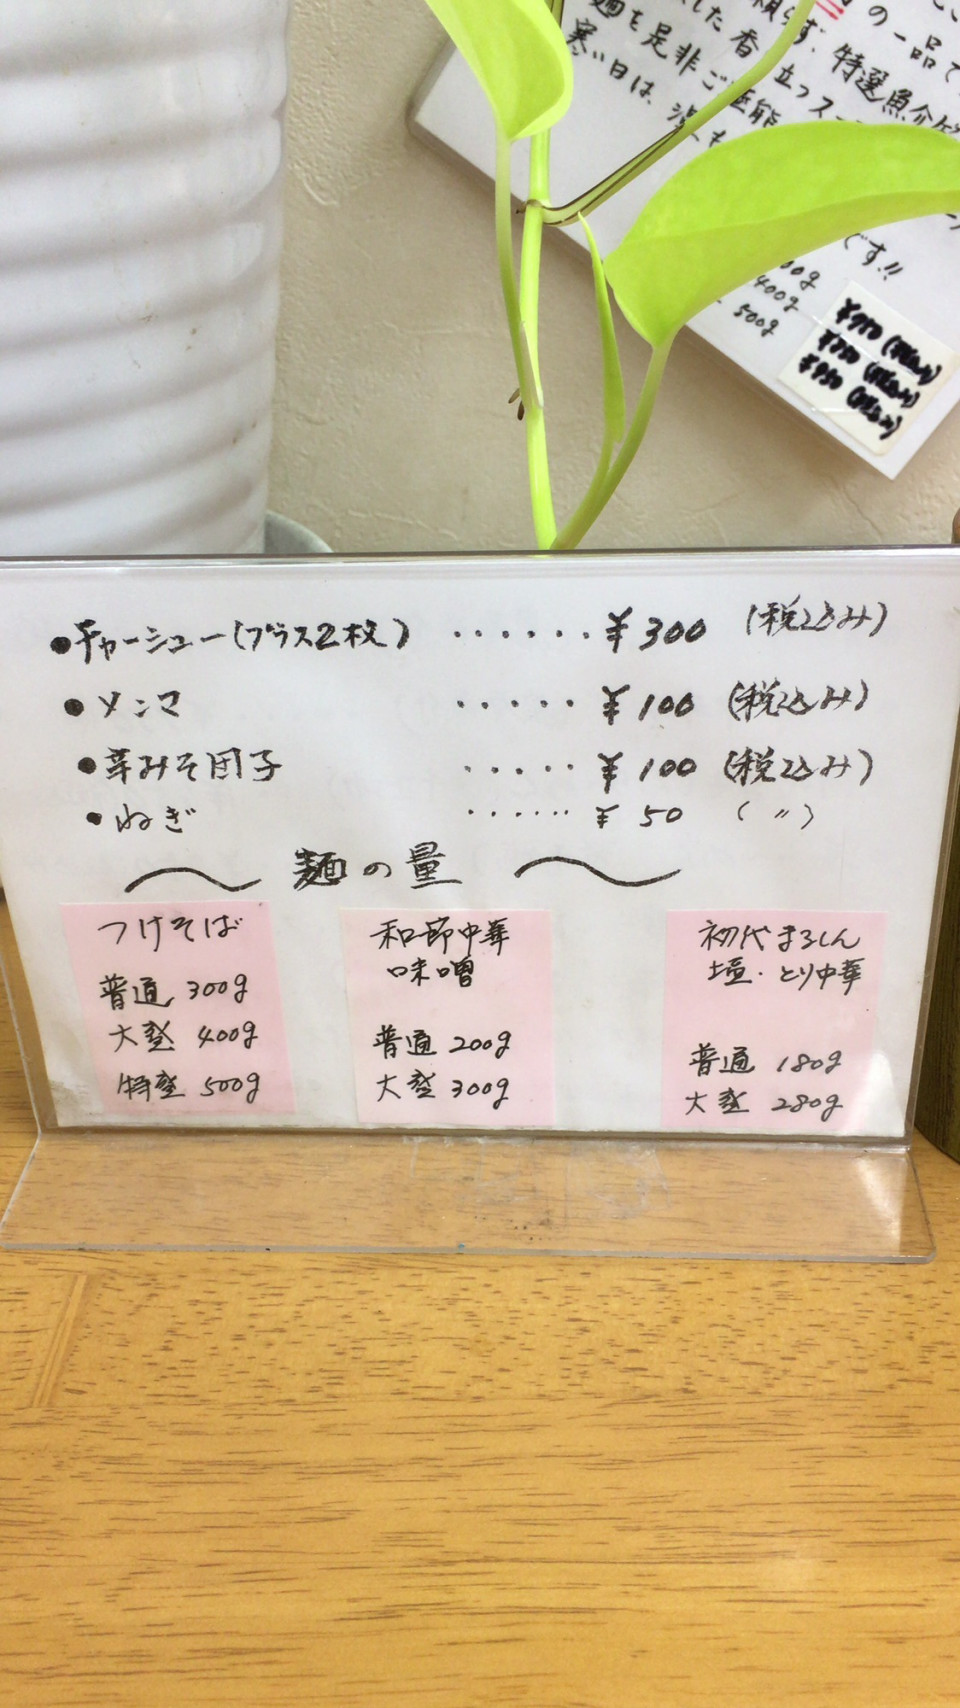 の一品で
した香り立つスー
頼らず、特選魚介だ
麺を是非ご堪能
寒い日は、温も
です!!
00g
400g
500g
¥950(税込み)
●チャーシュー(プラス2枚) ・・・・・・¥300 (税込み)
●メンマ ・・・・・¥100 (税込み)
●辛みそ団子 ・・・・・¥100 (税込み)
●ねぎ ・・・・・・¥50 (〃)
〜 麺の量 〜
つけそば
普通 300g
大盛 400g
特盛 500g
和節中華
味噌
普通 200g
大盛 300g
初代まるしん
塩・とり中華
普通 180g
大盛 280g